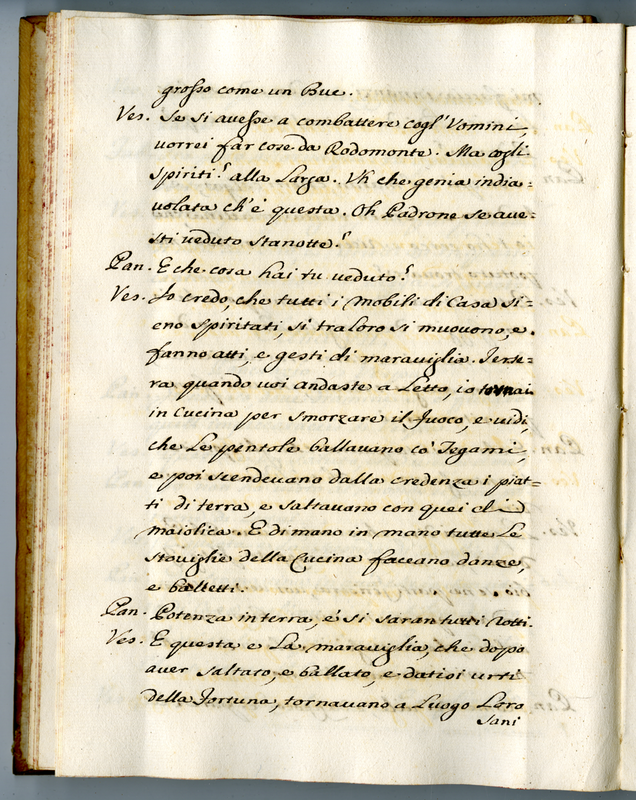 grosso come un Bue.
Ves. Se si avesse a combattere cogl' Uomini,
vorrei far cose da Rodomonte. Ma cogli
Spiriti? alla Larga. Uh che genia india=
volata ch'è questa. Oh Padrone se ave=
sti veduto stanotte?
Pan. E che cosa hai tu veduto?
Ves. Io credo, che tutti i mobili di Casa si=
eno spiritati, si tra loro si muovono, e
fanno atti, e gesti di maraviglia. Ierse=
ra quando voi andaste a Letto, io tornai
in Cucina per smorzare il fuoco, e vidi,
che Le pentole ballavano co' Tegami,
e poi scendevano dalla credenza i piat=
ti di terra, e saltavano con quei di
maiolica. E di mano in mano tutte Le
stoviglie della Cucina faceano danze,
e balletti.
Pan. Potenza in terra, e si saran tutti rotti.
Ves. E questa e La maraviglia, che dopo
aver saltato, e ballato, e datisi urti
della fortuna, tornavano a Luogo Loro
Sani